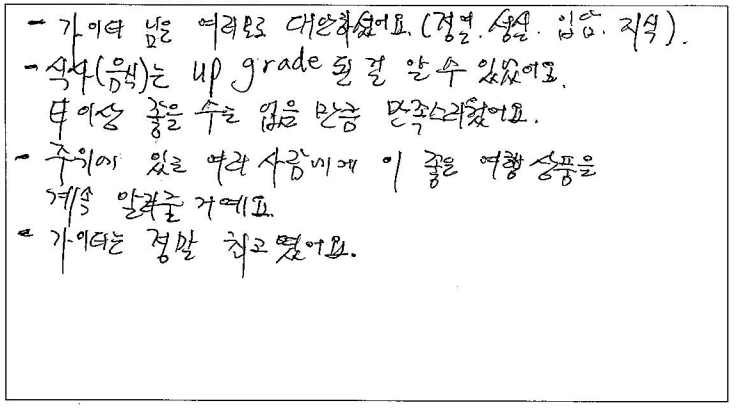 - 가이더 님은 여러모로 대단하셨어요. (정열. 성실. 입담. 지식).
- 식사(음식)는 up grade 된 걸 알 수 있었어요.
더 이상 좋을 수는 없을 만큼 만족스러웠어요.
- 주위에 있는 여러 사람에게 이 좋은 여행 상품을
계속 알려줄 거예요.
- 가이더는 정말 최고였어요.